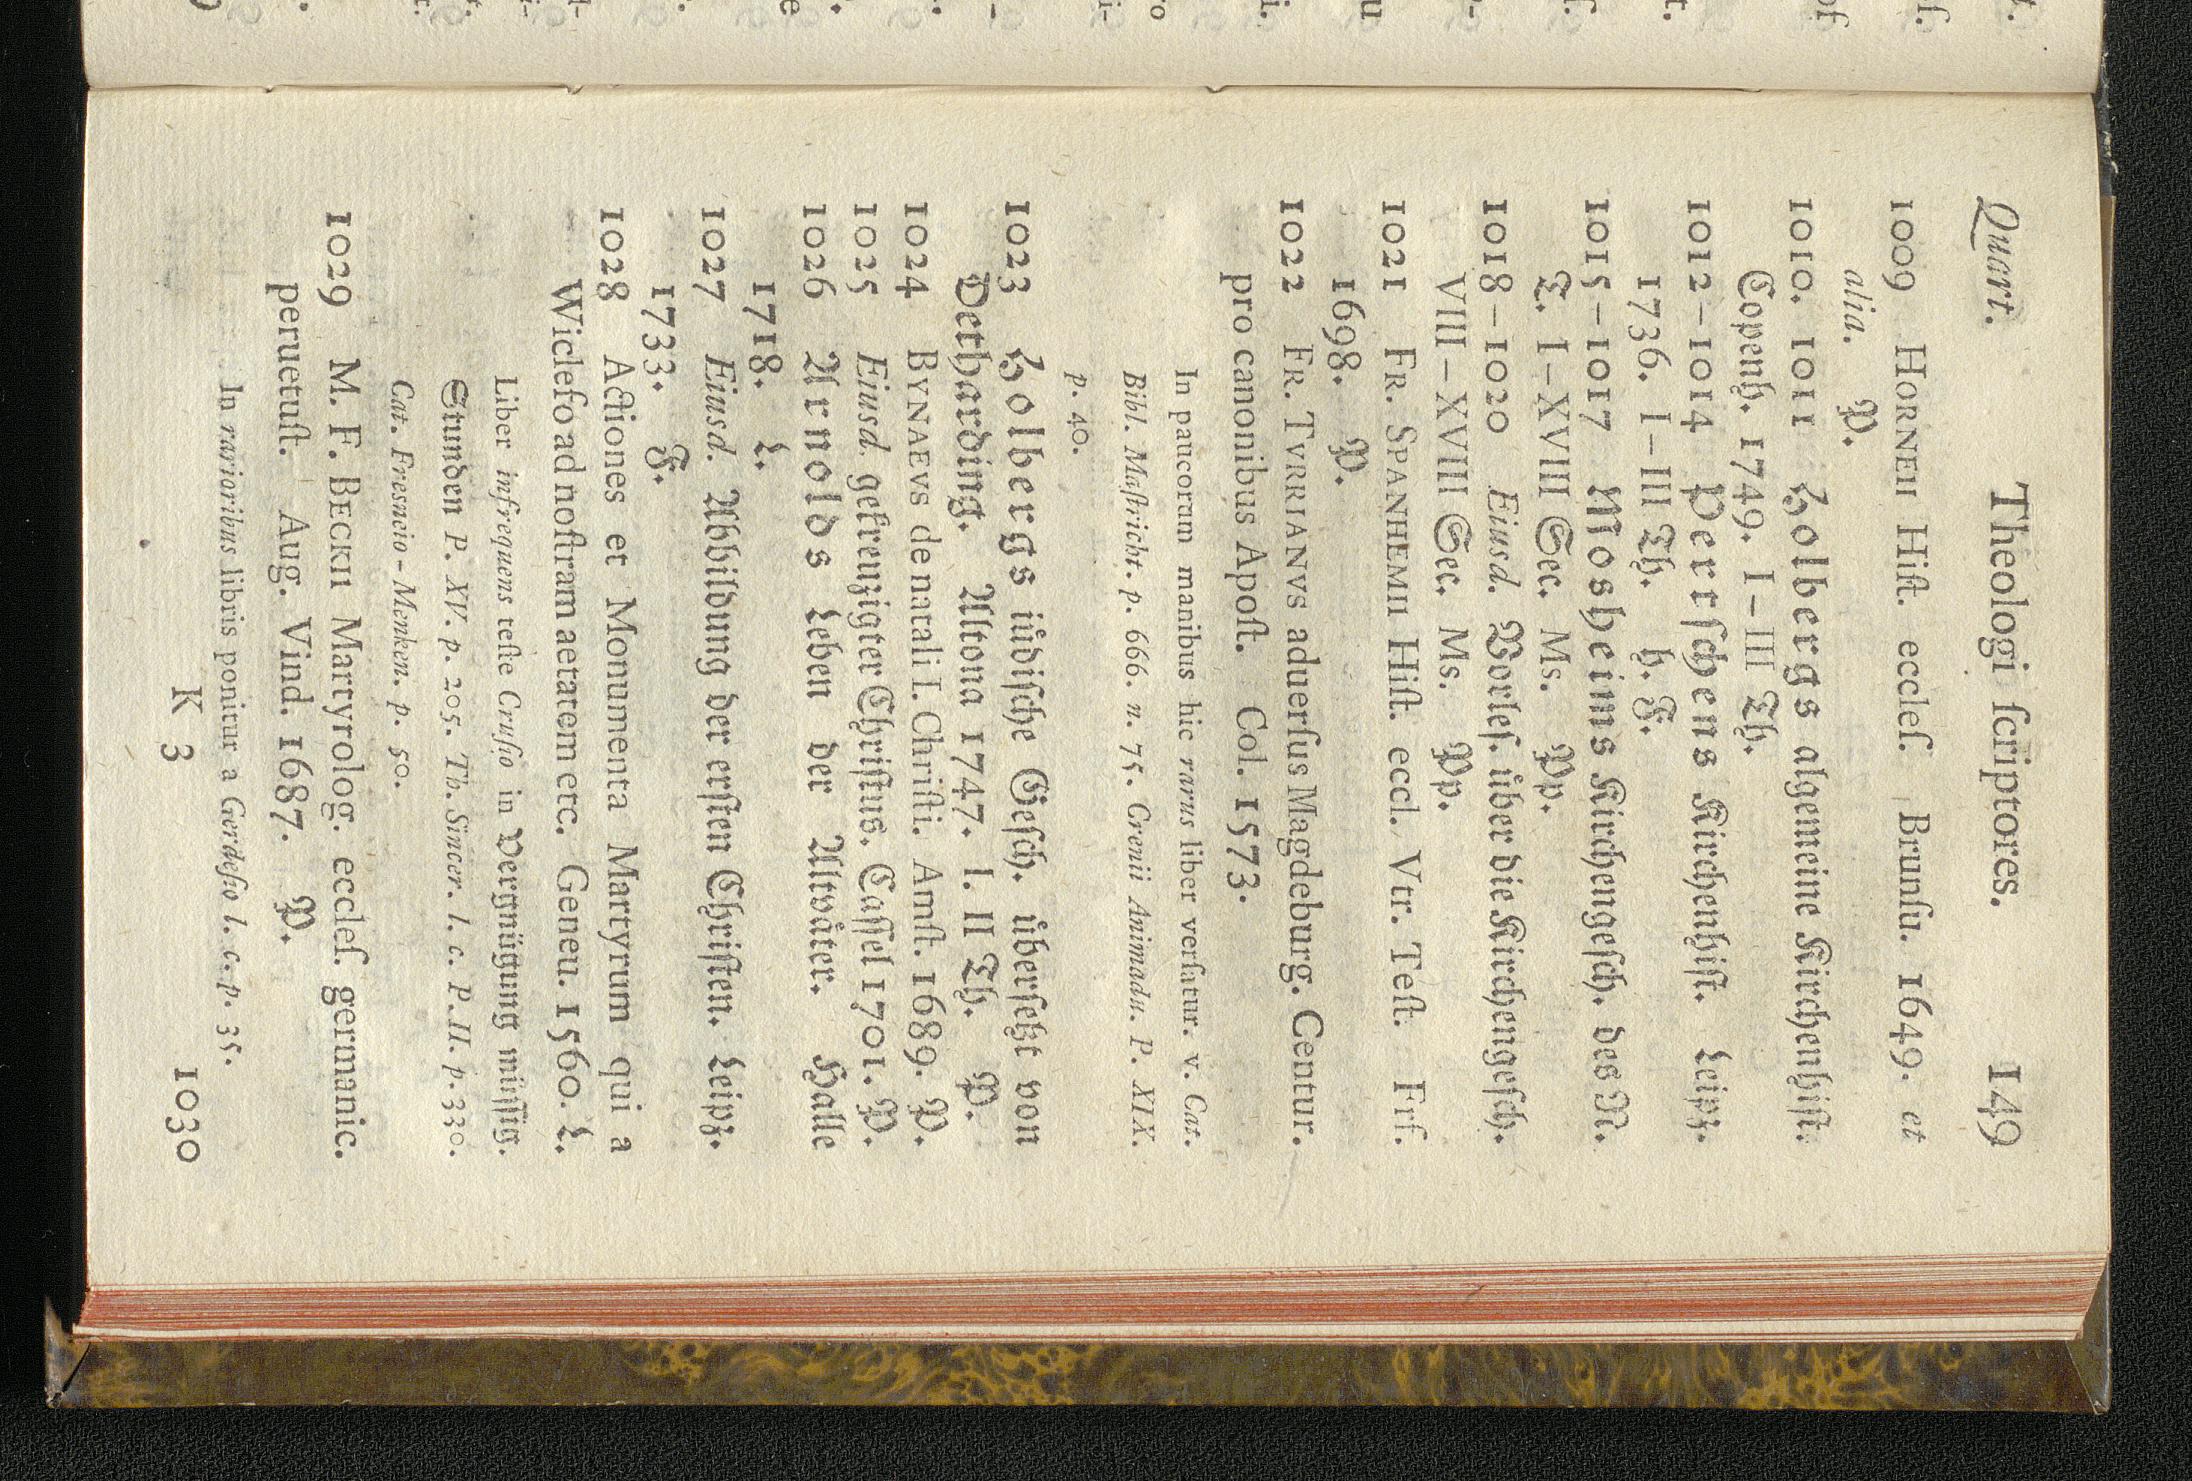 Quart. Theologi ſcriptores. 149
1009 HORNEII Hiſt. eccleſ. Brunſu. 1649. et
alia. P.
1010. 1011 Holbergs algemeine Kirchenhiſt.
Copenh. 1749. I–III Th.
1012–1014 Pertſchens Kirchenhiſt. Leipz.
1736. I–III Th. h. F.
1015–1017 Mosheims Kirchengeſch. des M.
T. I–XVIII Sec. Ms. Pp.
1018–1020 Eiusd. Vorleſ. über die Kirchengeſch.
VIII–XVIII Sec. Ms. Pp.
1021 FR. SPANHEMII Hiſt. eccl. Vtr. Teſt. Frf.
1698. P.
1022 FR. TVRRIANVS aduerſus Magdeburg. Centur.
pro canonibus Apoſt. Col. 1573.
In paucorum manibus hic rarus liber verſatur. v. Cat.
Bibl. Maſtricht. p. 666. n. 75. Crenii Animadu. P. XIX.
p. 40.
1023 Holbergs iüdiſche Geſch. überſetzt von
Detharding. Altona 1747. I. II Th. P.
1024 BYNAEVS de natali I. Chriſti. Amſt. 1689. P.
1025 Eiusd. gekreuzigter Chriſtus. Caſſel 1701. P.
1026 Arnolds Leben der Altväter. Halle
1718. L.
1027 Eiusd. Abbildung der erſten Chriſten. Leipz.
1733. F.
1028 Actiones et Monumenta Martyrum qui a
Wiclefo ad noſtram aetatem etc. Geneu. 1560. L.
Liber infrequens teſte Cruſio in Vergnügung müſſig.
Stunden P. XV. p. 205. Th. Sincer. l. c. P. II. p. 330.
Cat. Fresneio-Menken. p. 50.
1029 M. F. BECKII Martyrolog. eccleſ. germanic.
peruetuſt. Aug. Vind. 1687. P.
In rarioribus libris ponitur a Gerdeſio l. c. p. 35.
K 3 1030